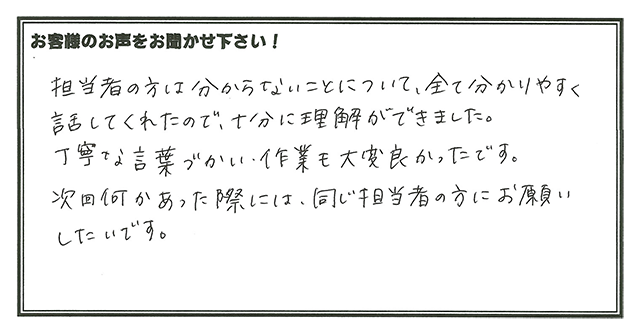 お客様のお声をお聞かせ下さい！
担当者の方は分からないことについて、全て分かりやすく
話してくれたので、十分に理解ができました。
丁寧な言葉づかい・作業も大変良かったです。
次回何かあった際には、同じ担当者の方にお願い
したいです。